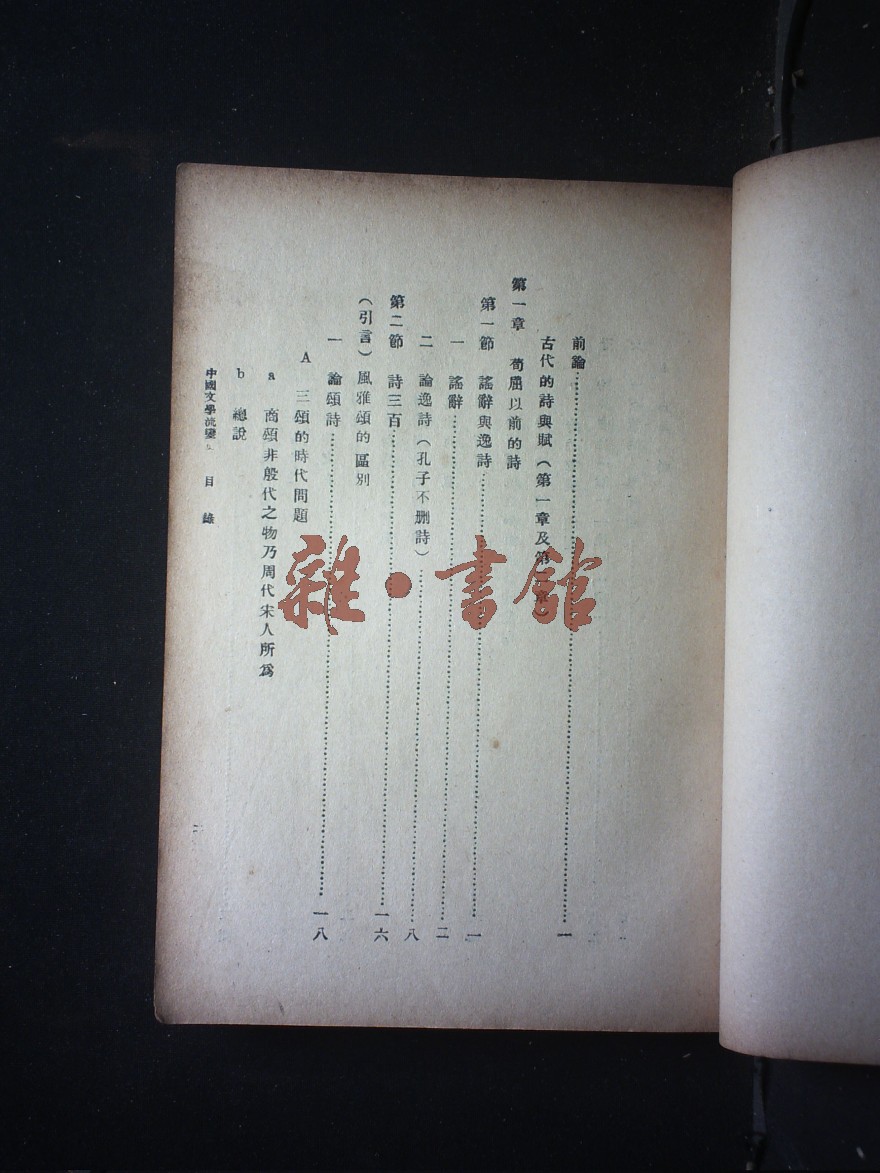 前論 一
古代的詩與賦（第一章及第二章）
第一章 荀屈以前的詩
第一節 謠辭與逸詩 一
一 謠辭 二
二 論逸詩（孔子不删詩） 八
第二節 詩三百 一六
（引言）風雅頌的區別
一 論頌詩 一八
A 三頌的時代問題
a 商頌非殷代之物乃周代宋人所爲
b 總說
中國文學流變 目錄
雜·書館